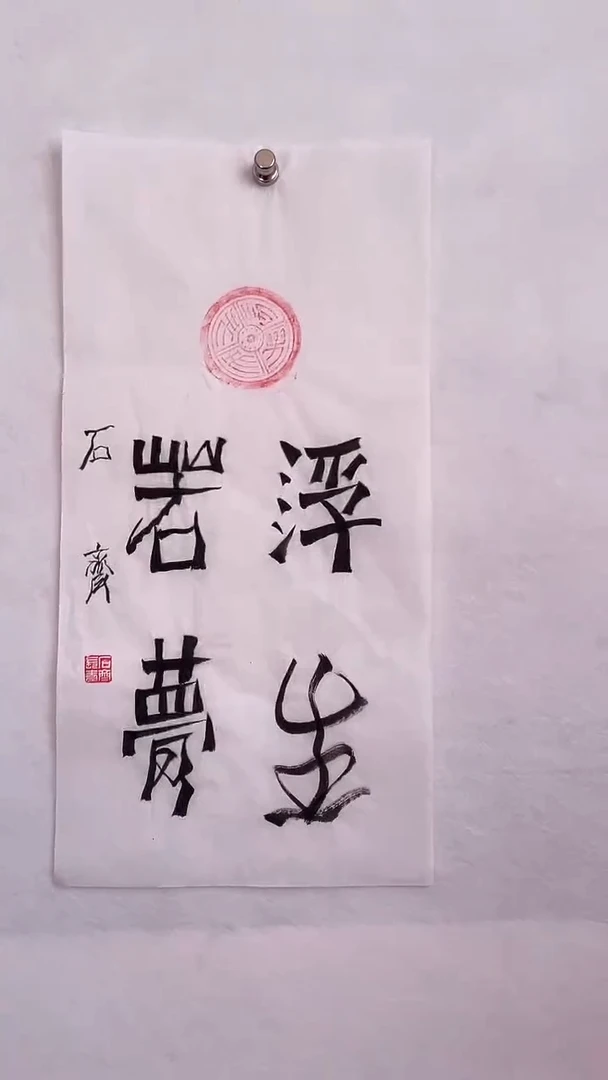 浮生
若夢
石齊